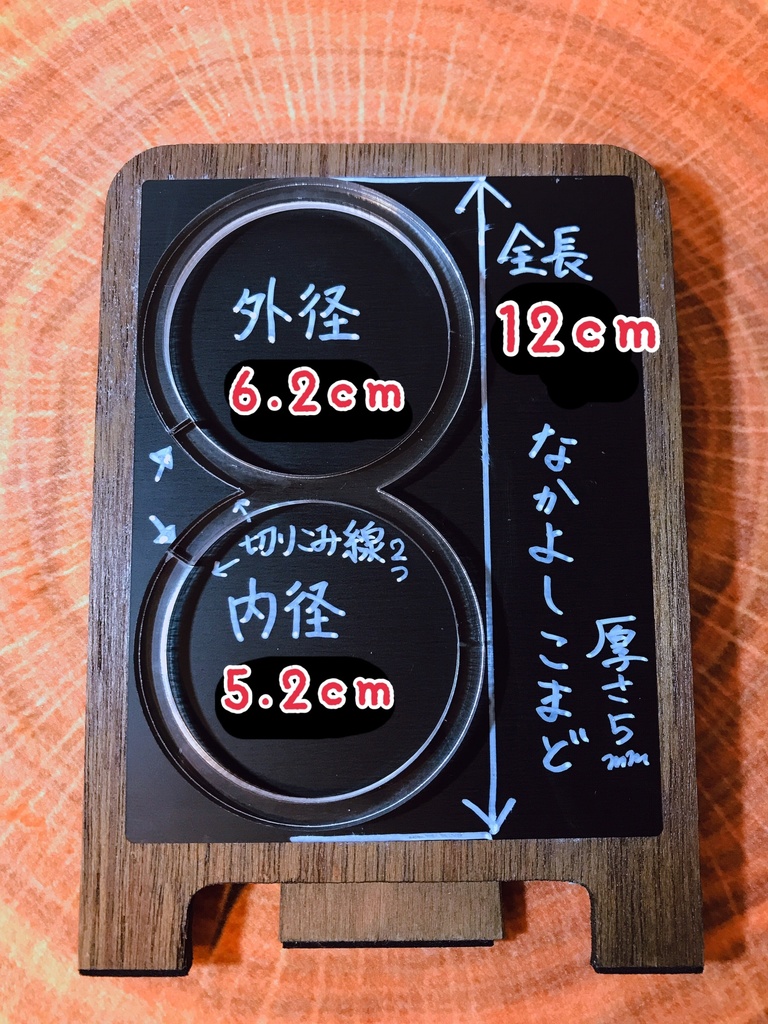 全長
12cm
外径
6.2cm
切りこみ線2つ
内径
5.2cm
なかよしこまど
厚さ5mm